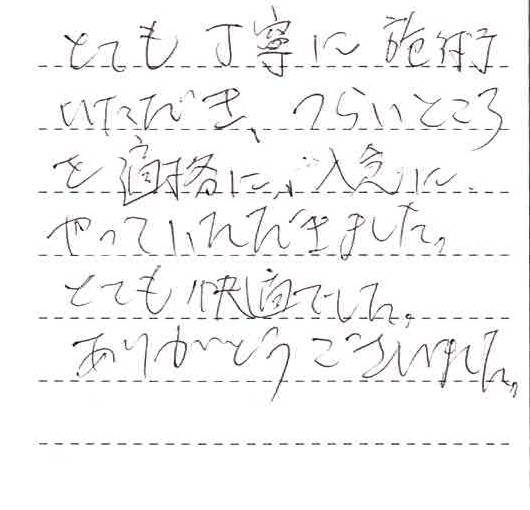 とても丁寧に施術
いただき、つらいところ
を適格に、入念に
やっていただきました。
とても快適でした。
ありがとうございました。